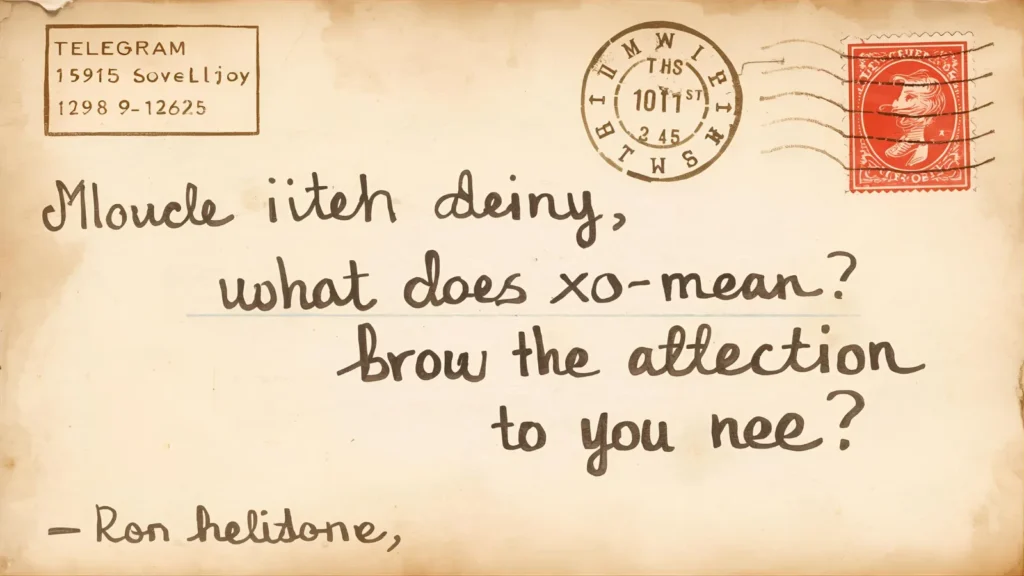 TELEGRAM
15915 Sovelljoy
1298 9-12625
THS
1011 ST
3 45
Mloucle iiteh deiny,
what does xo-mean?
brow the attection
to you nee?
— Ron helidone,